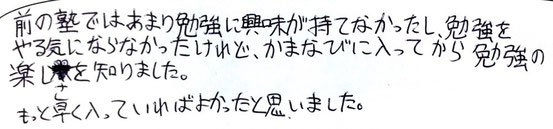 前の塾ではあまり勉強に興味が持てなかったし、勉強を
やる気にならなかったけれど、かまなびに入ってから勉強の
楽しさを知りました。
もっと早く入っていればよかったと思いました。